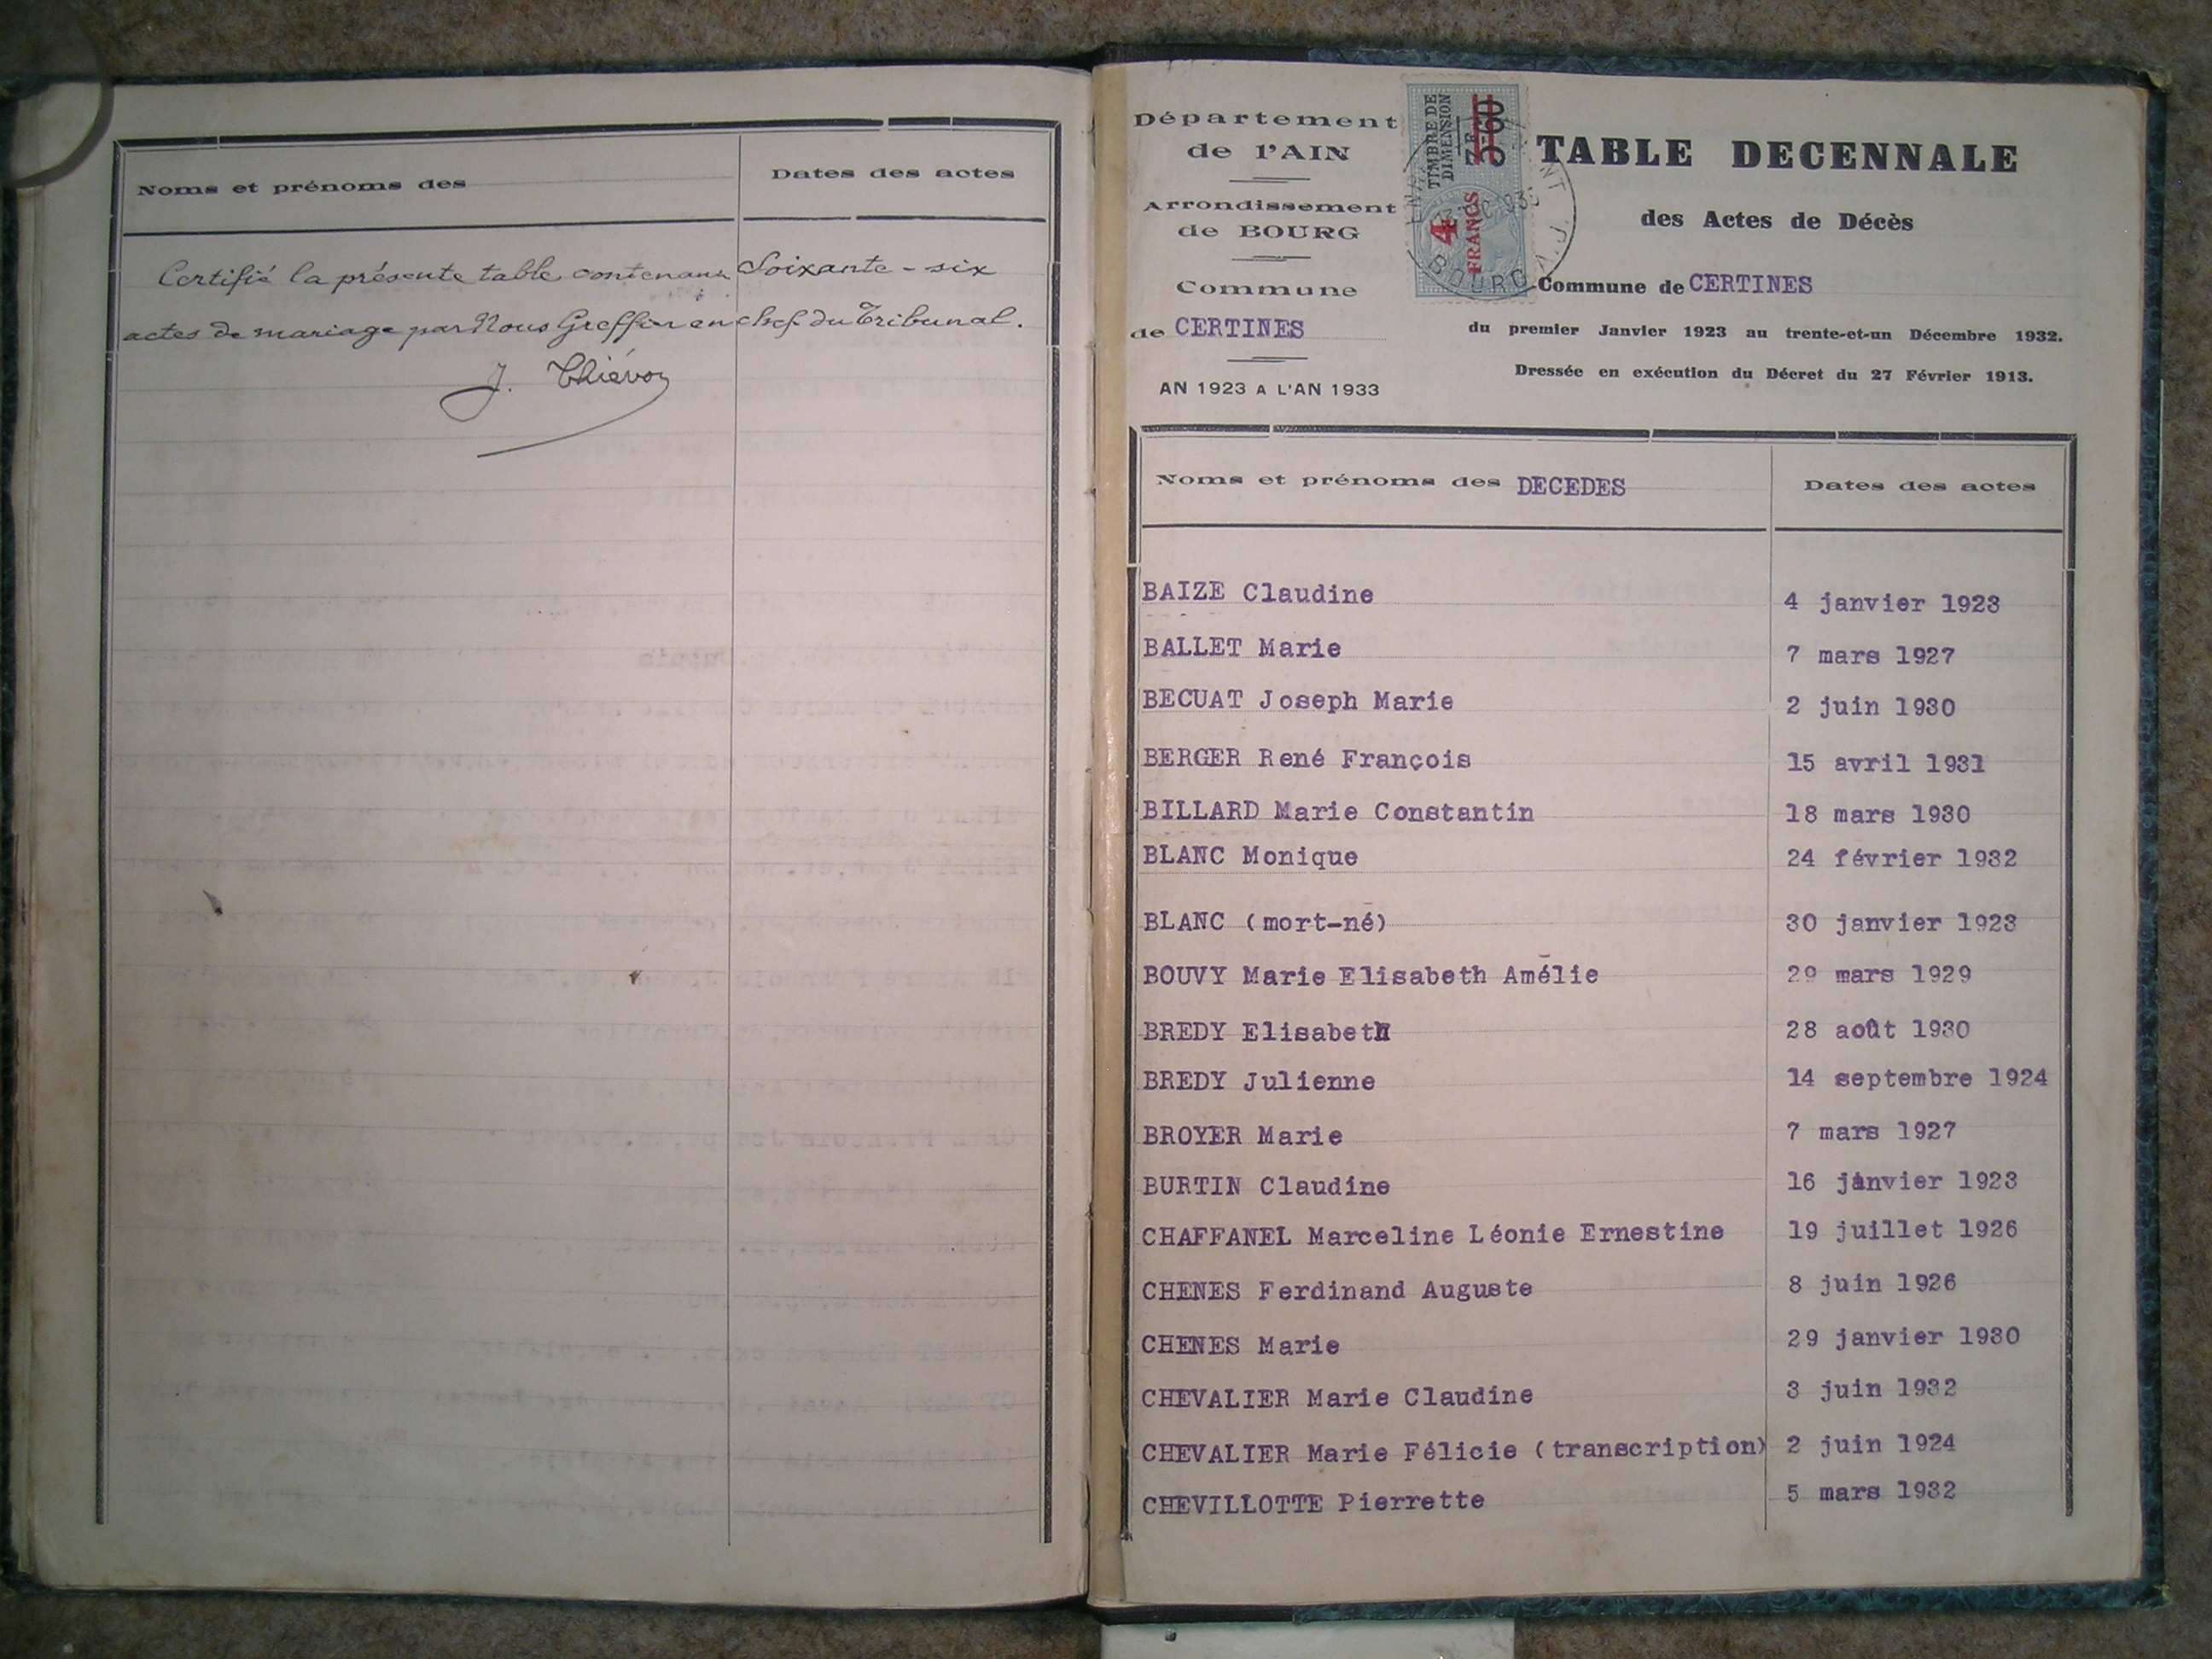 Noms et prénoms des
Dates des actes
Certifié la présente table contenant Soixante-six
actes de mariage par Nous Greffier en chef du Tribunal.
J.
Département
de l'AIN
Arrondissement
de BOURG
Commune
de CERTINES
AN 1923 A L'AN 1933
TIMBRE DE
DIMENSION
4
FRANCS
BOURG
TABLE DECENNALE
des Actes de Décès
Commune de CERTINES
du premier Janvier 1923 au trente-et-un Décembre 1932.
Dressée en exécution du Décret du 27 Février 1913.
Noms et prénoms des DECEDES
Dates des actes
BAIZE Claudine 4 janvier 1923
BALLET Marie 7 mars 1927
BECUAT Joseph Marie 2 juin 1930
BERGER René François 15 avril 1931
BILLARD Marie Constantin 18 mars 1930
BLANC Monique 24 février 1932
BLANC (mort-né) 30 janvier 1923
BOUVY Marie Elisabeth Amélie 29 mars 1929
BREDY Elisabeth 28 août 1930
BREDY Julienne 14 septembre 1924
BROYER Marie 7 mars 1927
BURTIN Claudine 16 janvier 1923
CHAFFANEL Marceline Léonie Ernestine 19 juillet 1926
CHENES Ferdinand Auguste 8 juin 1926
CHENES Marie 29 janvier 1930
CHEVALIER Marie Claudine 3 juin 1932
CHEVALIER Marie Félicie (transcription) 2 juin 1924
CHEVILLOTTE Pierrette 5 mars 1932